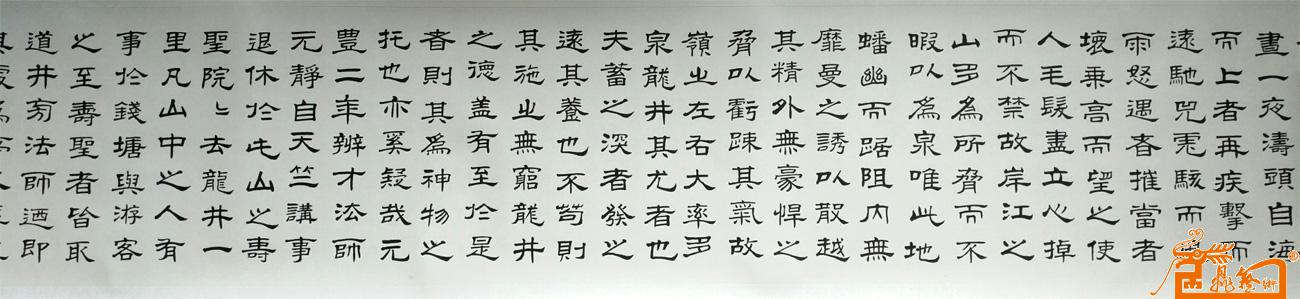 晝一夜濤頭自海
而上者再疾擊而
遠馳兕虎駭而風
雨怒遇者摧當者
壞乗高而望之使
人毛髮盡立心掉
而不禁故岸江之
山多為所脅而不
暇以為泉唯此地
蟠幽而踞阻内無
靡曼之誘以散越
其精外無豪悍之
脅以虧疎其氣故
嶺之左右大率多
泉龍井其尤者也
夫蓄之深者發之
遠其養也不苟則
其施也無窮龍井
之德蓋有至於是
者則其為神物之
托也亦奚疑哉元
豊二年辨才法師
元靜自天竺講事
退休於此山之壽
聖院〻去龍井一
里凡山中之人有
事於錢塘與游客
之至壽聖者皆取
道井旁法師迺即